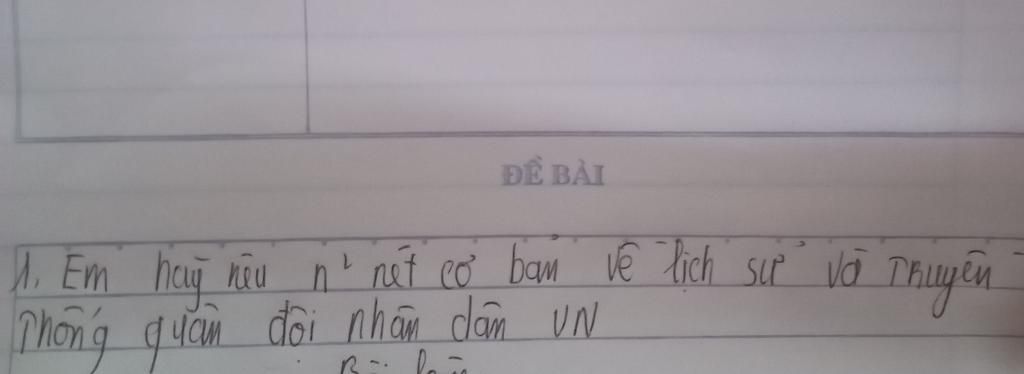 ĐỀ BÀI
1. Em hãy nêu n² nét cơ bản về lịch sử và Truyền
Thống quân đội nhân dân VN